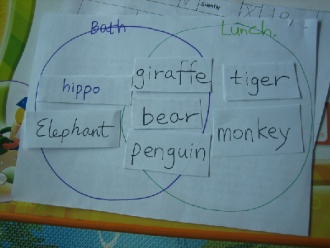 Bath
Lunch.
hippo
Elephant
giraffe
bear
penguin
tiger
monkey